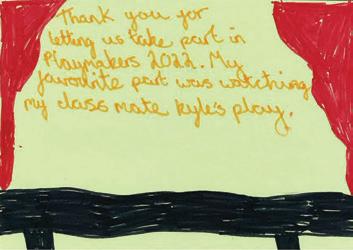 Thank you for
letting us take part in
Playmakers 2022. My
favourite part was watching
my class mate Kyle's play.